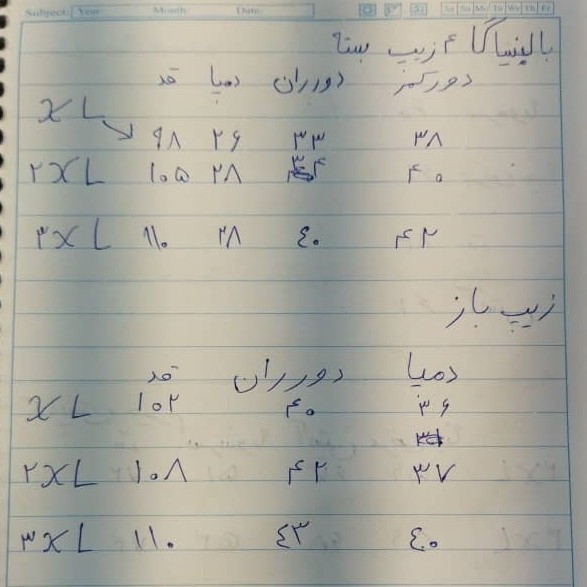 Subject: Year: Month: Date: Sa Su Mo Tu We Th Fr
بالنسیاگا ۴ زیپ بسته
دورکمر دورران دمپا قد
XL ۳۸ ۳۳ ۲۶ ۹۸
۲XL ۴۰ ۳۴ ۲۸ ۱۰۵
۳XL ۴۲ ۴۰ ۲۸ ۱۱۰
زیپ باز
دمپا دورران قد
XL ۳۶ ۴۰ ۱۰۲
۲XL ۳۷ ۴۲ ۱۰۸
۳XL ۴۰ ۴۳ ۱۱۰